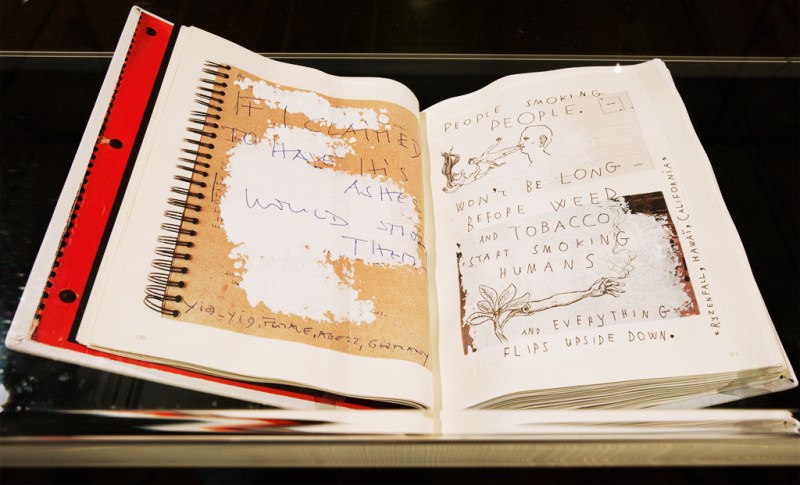 IF I CLAIMED
TO HAVE HIS
ASHES
I WOULD
THEM
yig-yig, FEMALE, AGE 22, GERMANY
PEOPLE SMOKING
PEOPLE.
WON'T BE LONG
BEFORE WEED
AND TOBACCO
START SMOKING
HUMANS
AND EVERYTHING
FLIPS UPSIDE DOWN.
*RYZENFALL, HAWAÏ, CALIFORNIA*